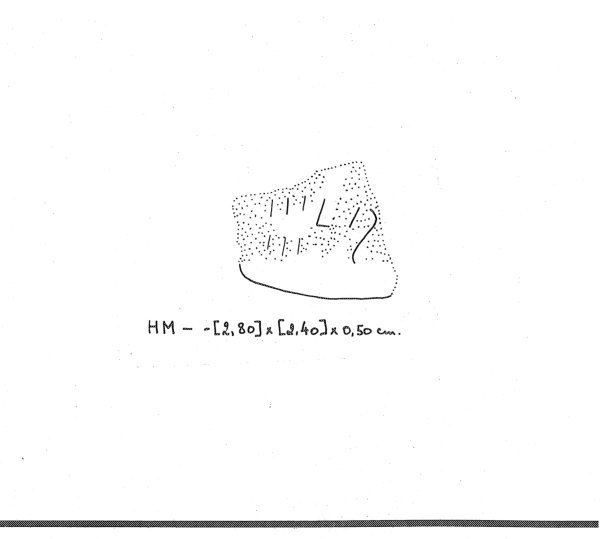 HM - -[2,80] x [2,40] x 0,50 cm.